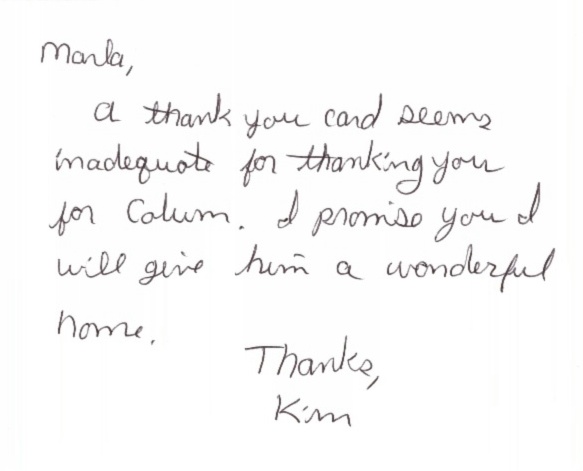 Marla,
a thank you card seems
inadequate for thanking you
for Colum. I promise you I
will give him a wonderful
home.
Thanks,
Kim